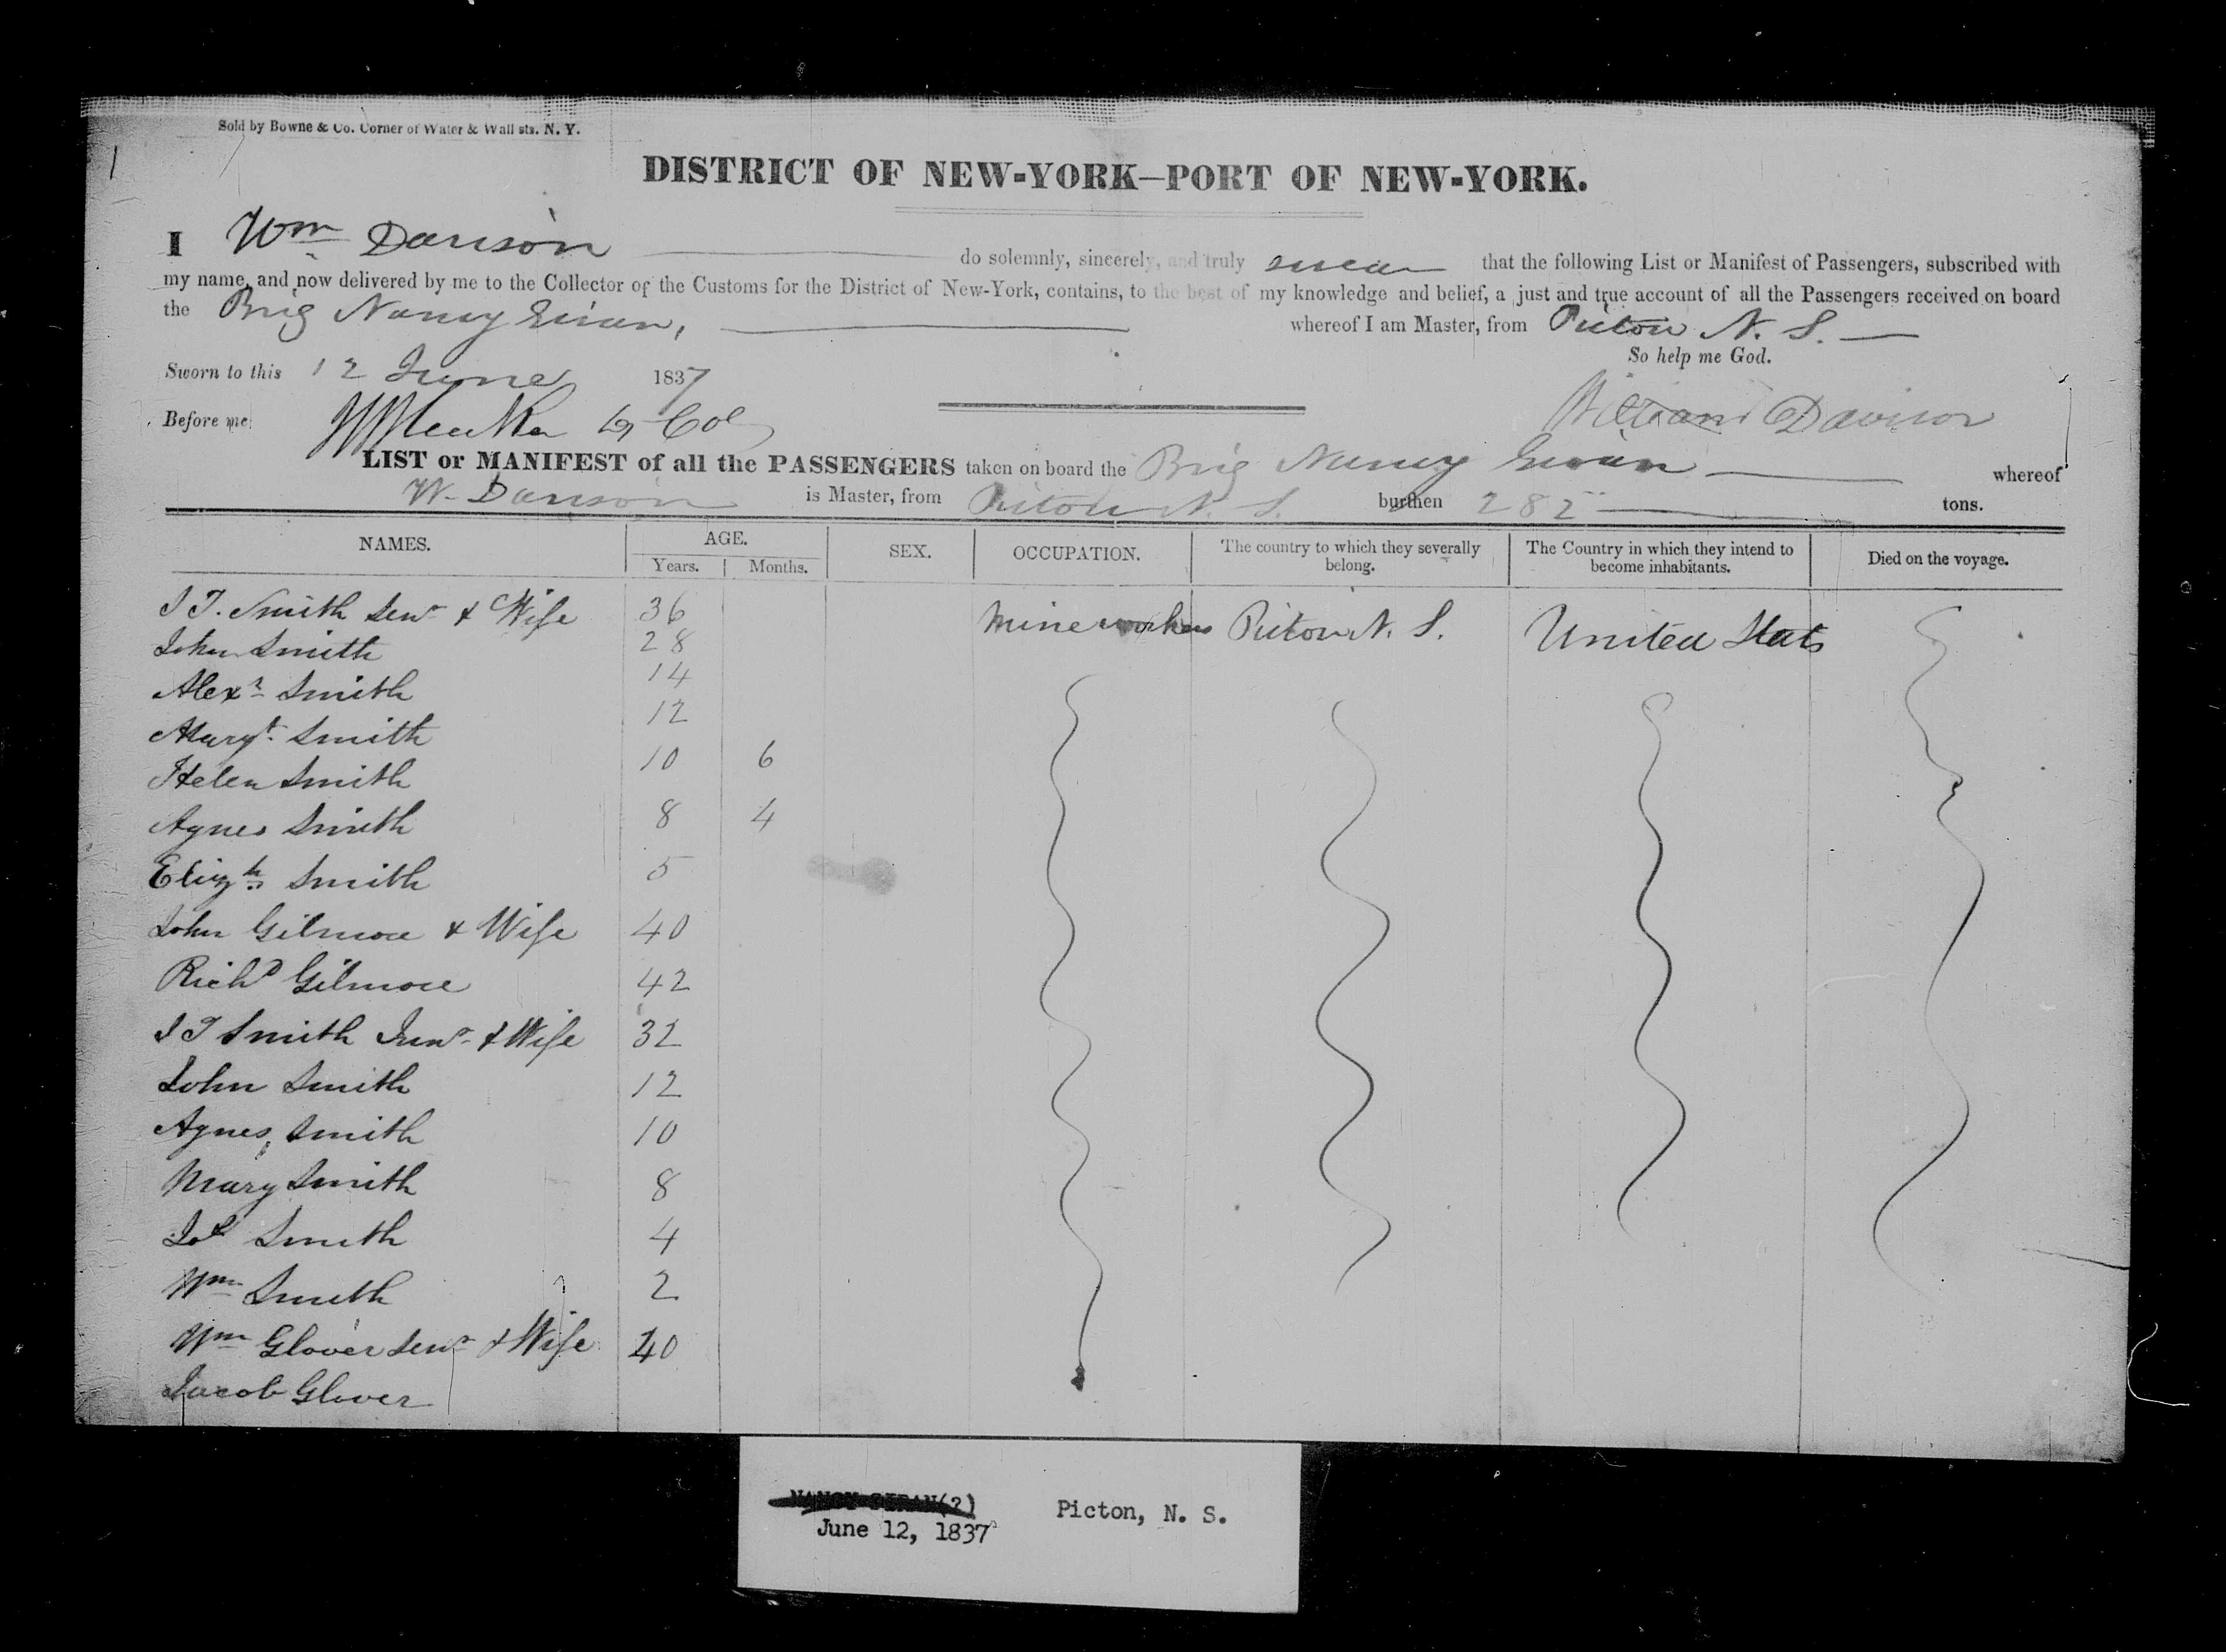 Sold by Bowne & Co. Corner of Water & Wall sts. N. Y.
DISTRICT OF NEW-YORK—PORT OF NEW-YORK.
I Wm Davison do solemnly, sincerely, and truly swear that the following List or Manifest of Passengers, subscribed with
my name, and now delivered by me to the Collector of the Customs for the District of New-York, contains, to the best of my knowledge and belief, a just and true account of all the Passengers received on board
the Brig Nancy whereof I am Master, from Picton N. S.
So help me God.
Sworn to this 12 June 1837
Before me, Col
William Davison
LIST or MANIFEST of all the PASSENGERS taken on board the Brig Nancy whereof
W. Davison is Master, from Picton N. S. burthen 282 tons.
NAMES. AGE. SEX. OCCUPATION. The country to which they severally belong. The Country in which they intend to become inhabitants. Died on the voyage.
Years. Months.
J T. Smith Senr & Wife 36 Mine workers Picton N. S. United Stats
John Smith 28
Alexr Smith 14
Margt Smith 12
Helen Smith 10 6
Agnes Smith 8 4
Elizth Smith 5
John Gilmore & Wife 40
Richd Gilmore 42
J T Smith Junr & Wife 32
John Smith 12
Agnes Smith 10
Mary Smith 8
Smith 4
Wm Smith 2
Wm Glover Senr & Wife 40
Jacob Glover
June 12, 1837 Picton, N. S.